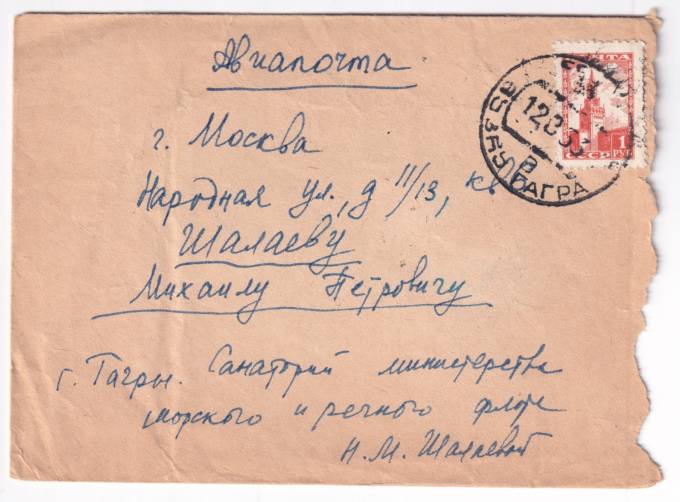 Авиапочта
г. Москва
Народная ул., д 11/13, кв
Шалаеву
Михаилу Петровичу
г. Гагры. Санаторий министерства
морского и речного флота
Н. М. Шалаевой
ПОЧТА
1
РУБ
СССР
ГАГРА